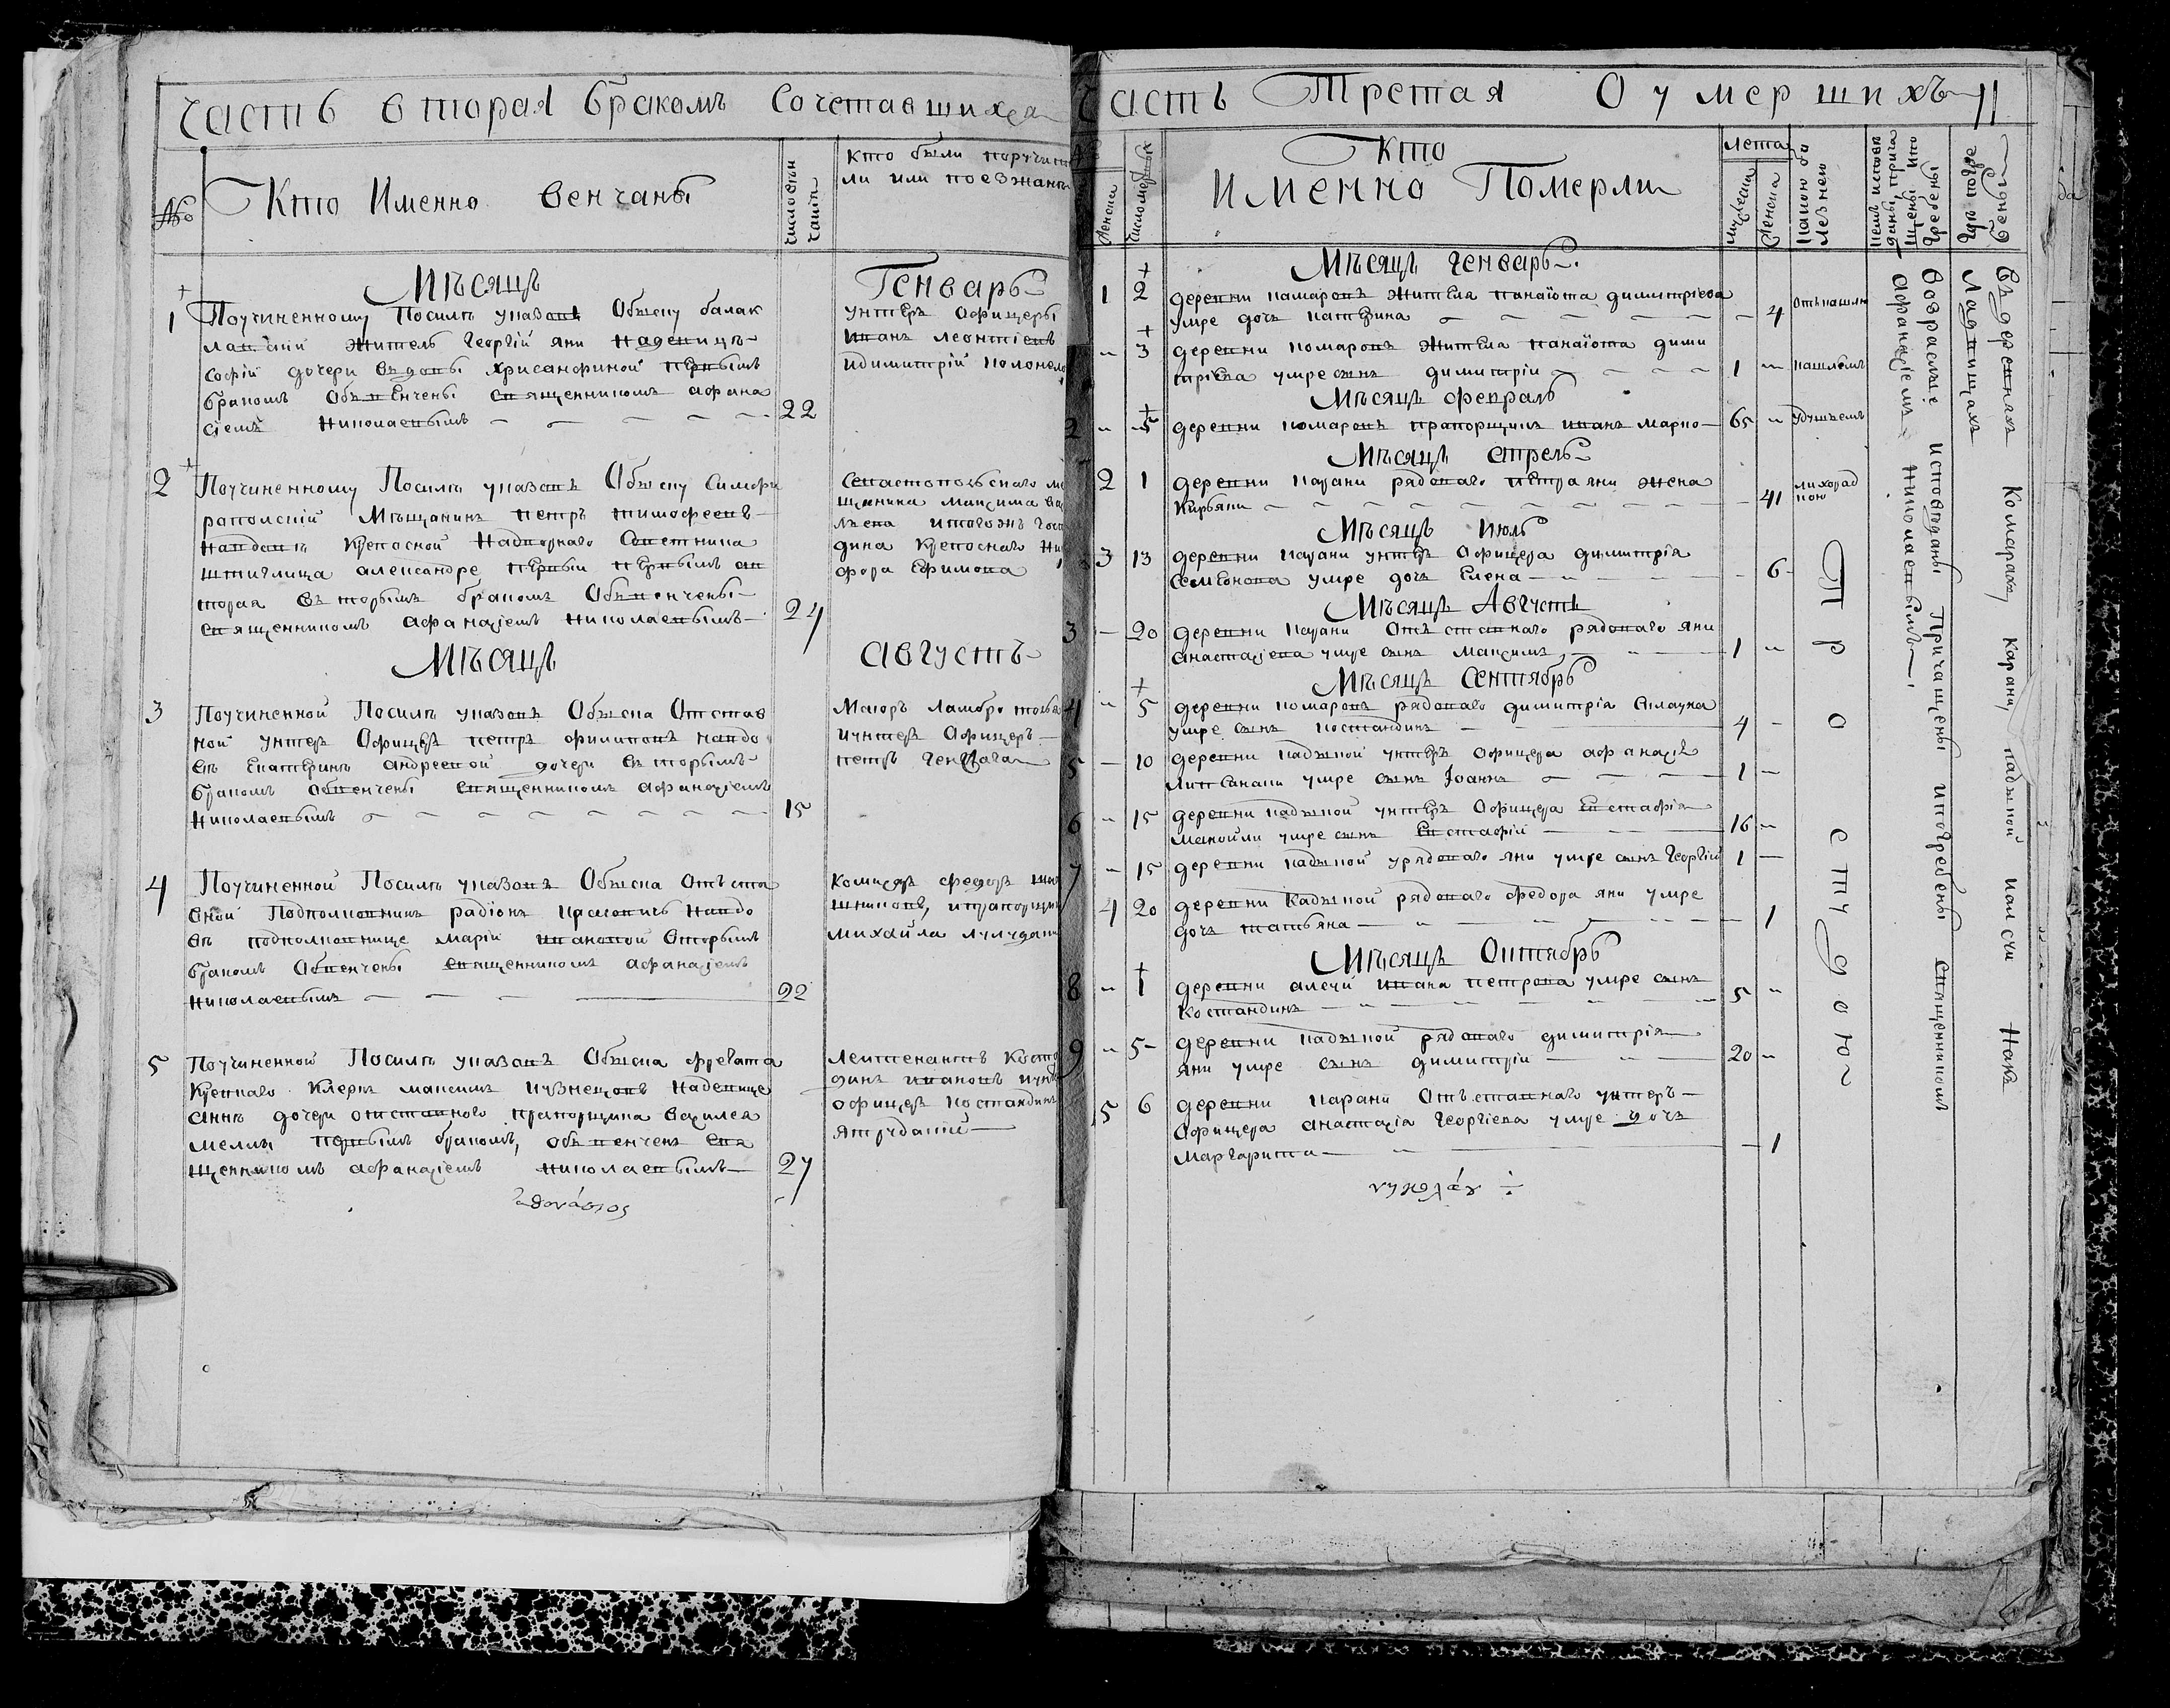 Часть вторая бракомъ Сочетавшихся
№
Кто Именно венчаны
число вен
чанія
кто были поручите
ли или поезжанъ
Мѣсяцъ Генварь
1
Поучиненному Посилѣ указовъ Обыску балак
лавский житель георгій яни на девицѣ
софій дочери вѣдовы хрисанфиной первымъ
бракомъ Обвенчены священникомъ афана
сіемъ Николаевымъ
22
унтеръ Афицеры
иванъ леонтіевъ
идимитрій полонело
2
Поучиненному Посилѣ указовъ Обыску Симфе
рополскій Мѣщанинъ петръ тимофеевъ
на вдовѣ Крепосной Надворнаго Советника
штиглица александре первый первымъ ав
торая въторымъ бракомъ Обвенчены
священникомъ афанасіемъ николаевымъ
24
Севастополскаго мѣ
щанина максима ва
лѣева итогожъ гос
дина крепоснаго ни
фора Ефимова
Мѣсяцъ Августъ
3
Поучиненной Посилѣ указовъ Обыска Отстав
ной унтеръ Офицеръ петръ филиповъ на вдо
въ Екатеринѣ андреевой дочери въторымъ
бракомъ Обвенчены священникомъ афанасіемъ
Николаевымъ
15
Маіоръ ламбро
иунтеръ Афицеръ
петръ
4
Поучиненной Посилѣ указовъ Обыска Отъста
вной Подполковникъ радіонъ на вдо
въ подполковнице маріи ивановой вторымъ
бракомъ Обвенчены священникомъ афанасіемъ
Николаевымъ
22
Комисаръ федоръ
ипрапорщик
михайла
5
Поучиненной Посилѣ указовъ Обыска фрегата
Клеркъ максимъ кузнецовъ на девице
Аннѣ дочери отставного прапорщика василея
первымъ бракомъ, обвенченъ свя
щенникомъ афанасіемъ николаевымъ
27
Лейтенантъ Коста
динъ ивановъ иунте
офицеръ костандинъ
Ἀθανάσιος
Часть Третая О умершихъ
женска
число мертвыхъ
Кто
Именно Померли
лета
мужска
женска
какою бо
лезнею
кемъ исповѣ
даны, прича
щены ипо
гребены
гдѣ погре
бены
Мѣсяцъ генварь
1 2 деревни камаровъ жителя панаіота димитріева
умре дочь катерина 4 отъ кашлю
1 3 деревни комаровъ жителя панаіота дими
тріева умре сынъ димитрій 1 кашлемъ
Мѣсяцъ февраль
2 5 деревни комаровъ прапорщикъ иванъ марко 65 удушъемъ
Мѣсяцъ Апрель
2 1 деревни карани рядоваго петра яни жена
Кирьяки 41 лихорад
кою
Мѣсяцъ Июль
3 13 деревни карани унтеръ Афицера димитрія
Семеонова умре дочь Елена 6
Мѣсяцъ Августъ
3 20 деревни карани Отъставнаго рядоваго яни
анастасіева умре сынъ Максимъ 1
Мѣсяцъ Сентябрь
4 5 деревни комаровъ рядоваго димитрія
умре сынъ костандинъ 4
5 10 деревни кадыкой унтеръ офицера афанасія
умре сынъ Іоаннъ 1
6 15 деревни кадыкой унтеръ Офицера Евстафія
манойли умре сынъ Евстафій 16
7 15 деревни кадыкой урядоваго яни умре сынъ георгій 1
4 20 деревни Кадыкой рядоваго федора яни умре
дочь татьяна 1
Мѣсяцъ Октябрь
8 1 деревни алсчи ивана петрова умре сынъ
Костандинъ 5
9 5 деревни кадыкой рядоваго димитрія
яни умре сынъ димитрій 20
5 6 деревни карани Отъставнаго унтеръ
Афицера анастасія георгіева умре дочь
Маргарита 1
Простудою
возраслые исповѣданы Причащены ипогребены Священникомъ
Афанасіемъ Николаевымъ
Въ деревняхъ Комарахъ Карани, кадыкой
Кладпищахъ
νηκολάου